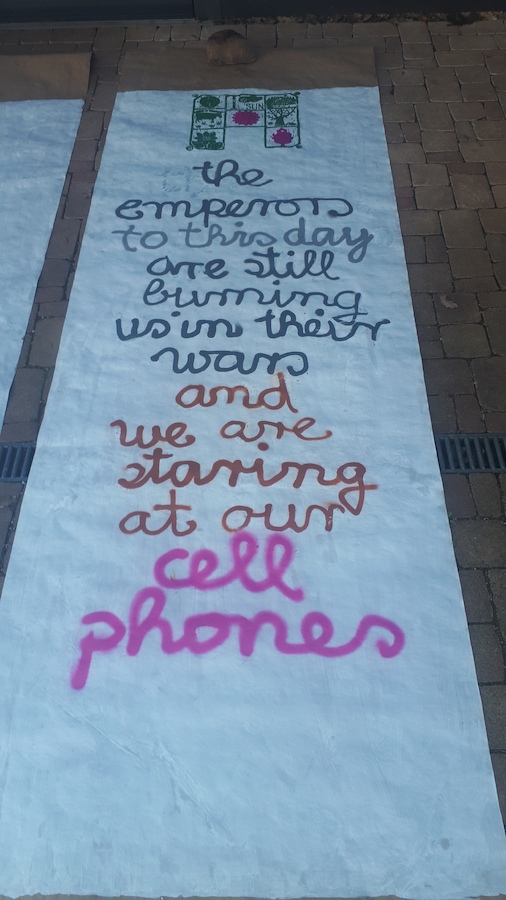 the
emperors
to this day
are still
burning
us in their
wars
and
we are
staring
at our
cell
phones